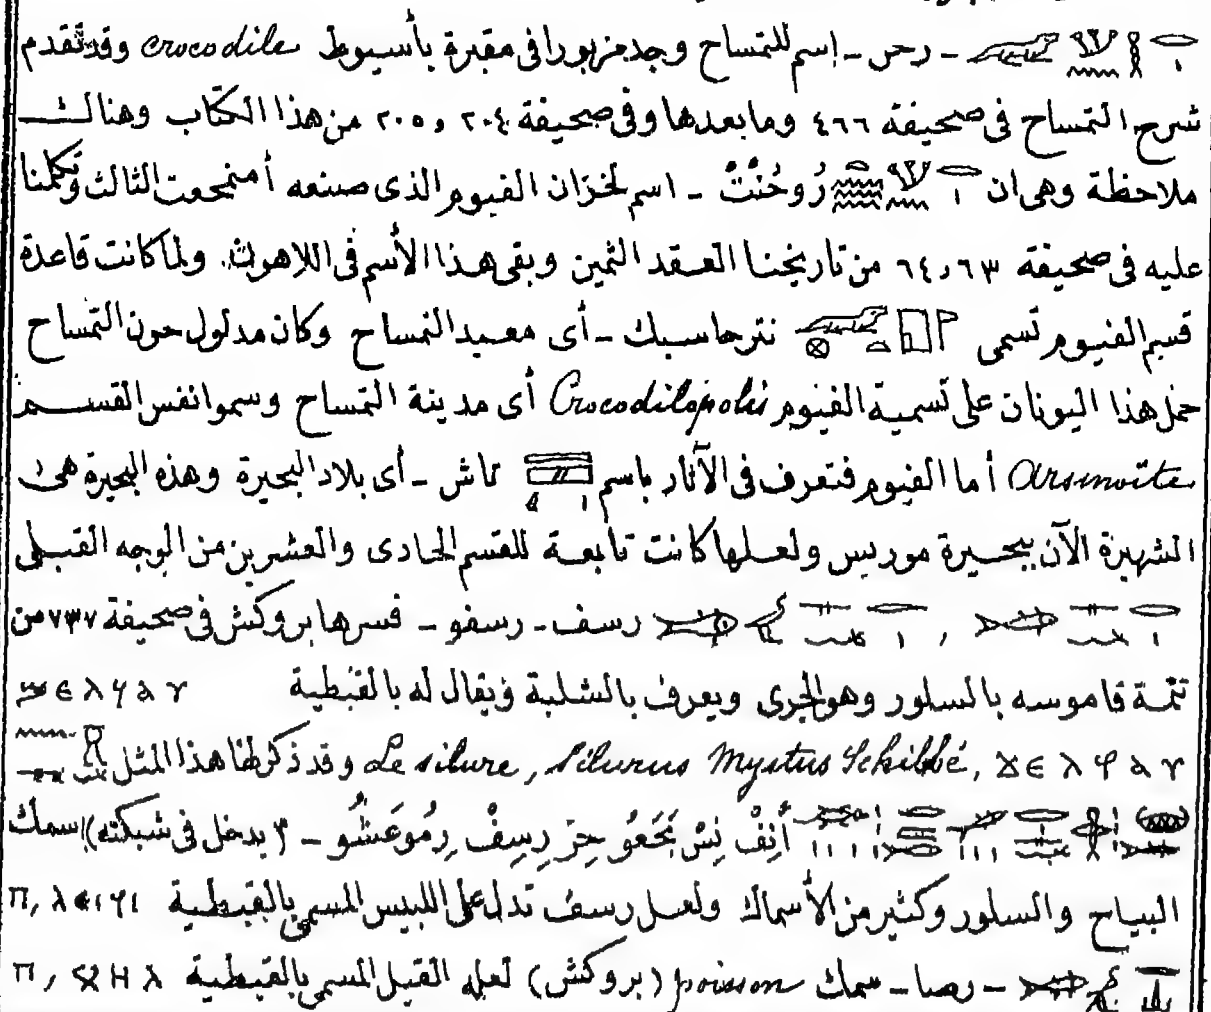 - رحن - إسم للتمساح وجد مزبورا فى مقبرة بأسيوط crocodile وقد تقدم
شرح التمساح فى صحيفة ٤٦٦ وما بعدها وفى صحيفة ٢٠٤ و ٢٠٥ من هذا الكتاب وهنالك
ملاحظة وهى ان رُوحُنْتْ - اسم لخزان الفيوم الذى صنعه أمنمحعت الثالث وتكلمنا
عليه فى صحيفة ٦٣ و ٦٤ من تاريخنا العقد الثمين وبقى هذا الأسم فى اللاهون ولما كانت قاعدة
قسم الفيوم تسمى نتر حاسبك - أى معبد التمساح وكان مدلول حون التمساح
حمل هذا اليونان على تسمية الفيوم Crocodilopolis أى مدينة التمساح وسموا نفس القسم
Arsinoïte أما الفيوم فتعرف فى الآثار باسم تاش - أى بلاد البحيرة وهذه البحيرة هى
الشهيرة الآن ببحيرة موريس ولعلها كانت تابعة للقسم الحادى والعشرين من الوجه القبلى
, رسف - رسفو - فسرها بروكش فى صحيفة ٧٣٧ من
تتمة قاموسه بالسلور وهو الجرى ويعرف بالشلبة ويقال له بالقبطية
Le silure, Silurus Mystus Schilbé, وقد ذكر لنا هذا المثل
أُنِفْ نِسْ بَحَعُو حِرْ رِسِفْ رِمُوعَشُو - (يدخل فى شبكته) اسمك
البياح والسلور وكثير من الأسماك ولعل رسف تدل على اللبيس المسمى بالقبطية
- رصا - سمك poisson (بروكش) لعله القيل المسمى بالقبطية